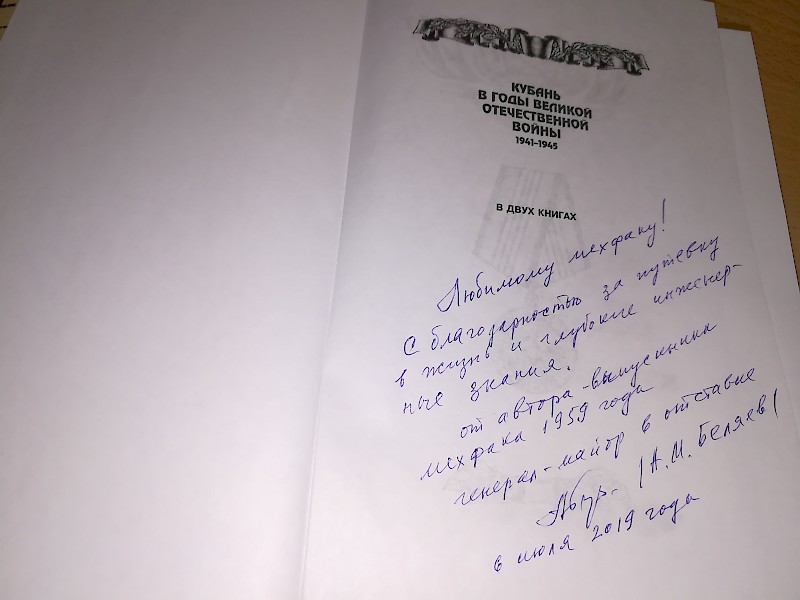 КУБАНЬ
В ГОДЫ ВЕЛИКОЙ
ОТЕЧЕСТВЕННОЙ
ВОЙНЫ
1941–1945
В ДВУХ КНИГАХ
Любимому мехфаку!
С благодарностью за путевку
в жизнь и глубокие инженер-
ные знания.
от автора-выпускника
мехфака 1959 года
генерал-майор в отставке
/А.М. Беляев/
6 июля 2019 года